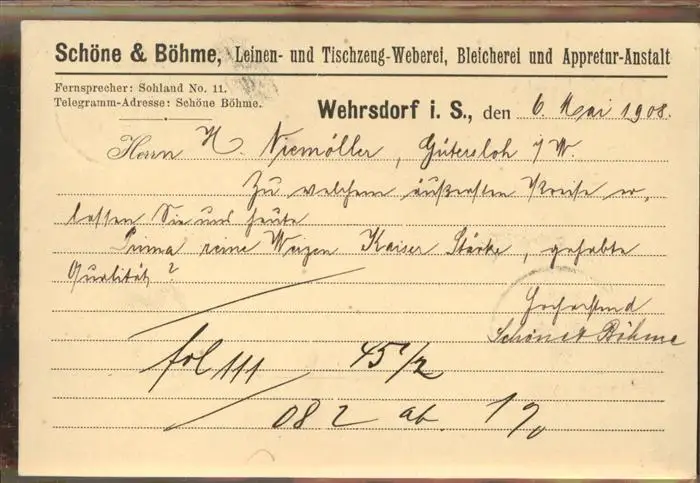 Schöne & Böhme, Leinen- und Tischzeug-Weberei, Bleicherei und Appretur-Anstalt
Fernsprecher: Sohland No. 11.
Telegramm-Adresse: Schöne Böhme.
Wehrsdorf i. S., den 6. Mai 1908.
Herrn H. Niemöller, Gütersloh i/W.
Zu welchem äußersten Preise er-
lassen Sie uns heute
Prima reine Weizen Kaiser Stärke, gehabte
Qualität?
Hochachtend
Schöne & Böhme
fol 111 45 1/2
08 2 ab. 1%